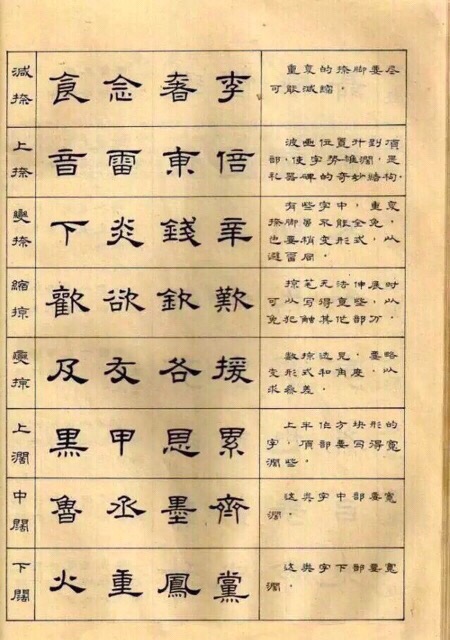 减捺
食 念 李
重复的捺脚要尽
可能减缩.
上捺
音 雷 東 倍
波画位置升到項
部,使字势雄濶,是
礼器碑的奇妙結构.
變捺
下 炎 錢 辛
有些字中,重复
捺脚虽不能全免,
也要稍变形式,以
避雷同
縮掠
歡 欲 欽 歎
掠笔无法伸展时
可以写得些,以
免犯触其他部分
變掠
及 友 各 援
数掠迭見,要略
变形式和角度,以
求參差
上濶
黑 甲 恩 累
上半作方块形的
字,項部要写得寬
濶些.
中闊
魯 丞 墨 齊
这类字中部要寬
濶.
下闊
火 重 鳳 黨
这类字下部要寬
濶.